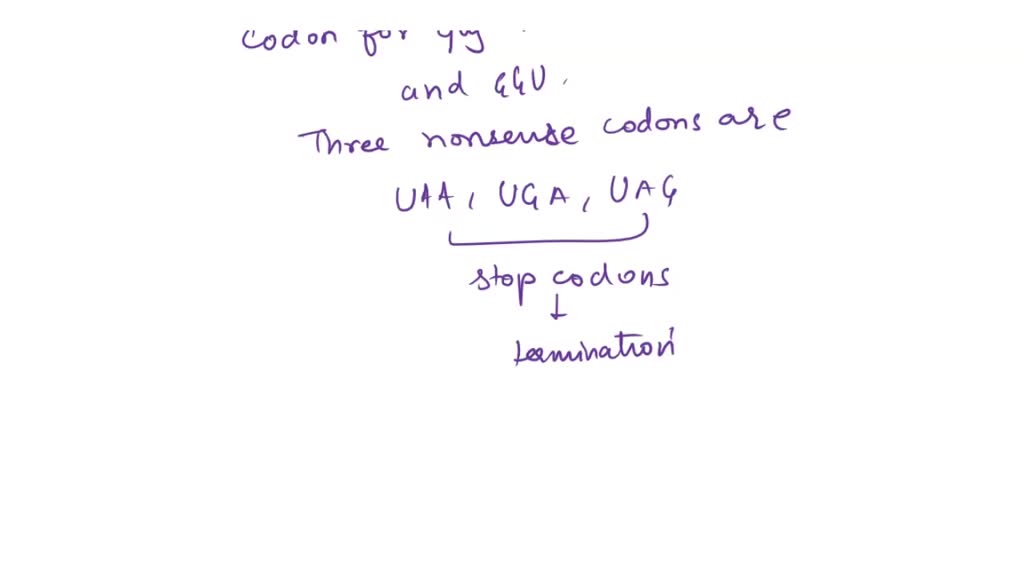 codon for
and GGU.
Three nonsense codons are
UAA, UGA, UAG
stop codons
termination